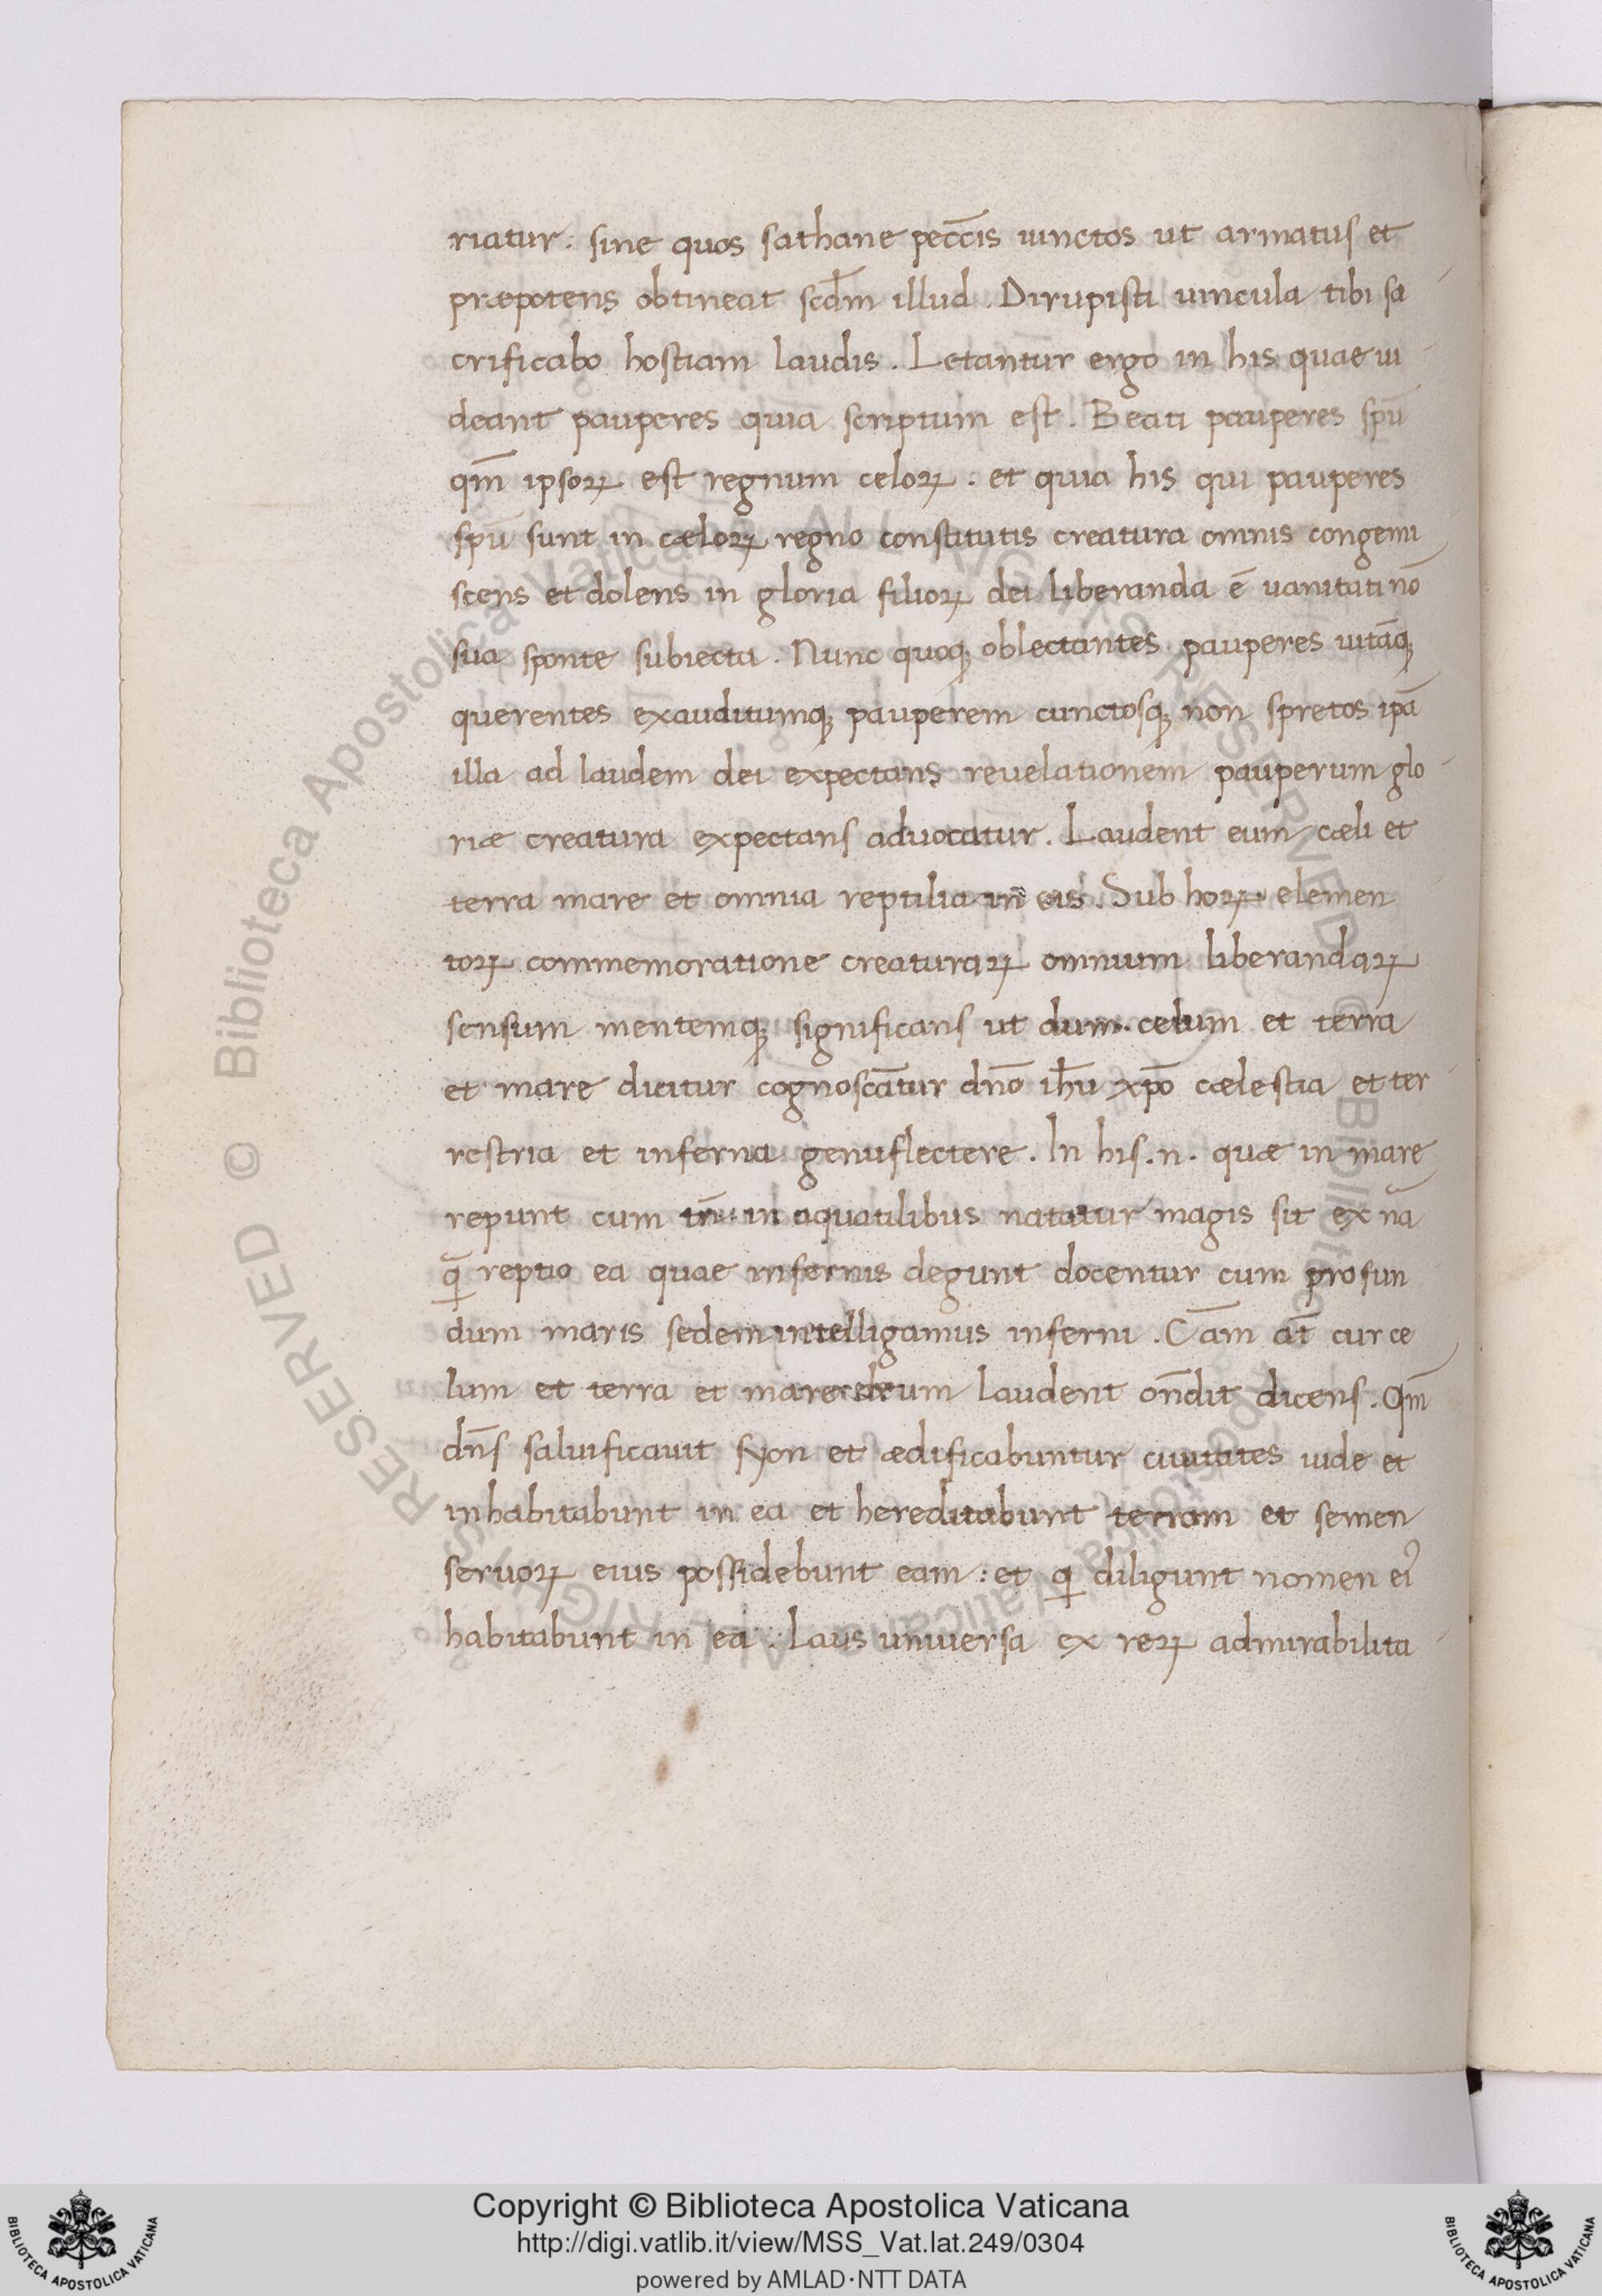 riatur: sine quos sathane peccīs iunctos ut armatus et
præpotens obtineat scdm̄ illud. Dirupisti uincula tibi sa
crificabo hostiam laudis. Letantur ergo in his quae ui
deant pauperes quia scriptum est. Beati pauperes spū
qm̄ ipsoꝝ est regnum celoꝝ: et quia his qui pauperes
spū sunt in cæloꝝ regno constitutis creatura omnis congemi
scens et dolens in gloria filioꝝ dei liberanda ē uanitati nō
sua sponte subiecta. Nunc quoqꝫ oblectantes pauperes uitāqꝫ
querentes exauditumqꝫ pauperem cunctosqꝫ non spretos ipā
illa ad laudem dei expectans reuelationem pauperum glo
riæ creatura expectans aduocatur. Laudent eum cæli et
terra mare et omnia reptilia in eis. Sub hoꝝ elemen
toꝝ commemoratione creaturaꝝ omnium liberandaꝝ
sensum mentemqꝫ significans ut dum celum et terra
et mare dicitur cognoscātur dn̄o ih̄u xp̄o cælestia et ter
restria et inferna genuflectere. In his .n. quæ in mare
repunt cum in aquatilibus natatur magis sit ex nā
reptio ea quae infernis degunt docentur cum profun
dum maris sedem intelligamus inferni. Cām aūt cur ce
lum et terra et mare deum laudent on̄dit dicens. Qm̄
dn̄s saluificauit syon et ædificabuntur ciuitates iude et
inhabitabunt in ea et hereditabunt terram et semen
seruoꝝ eius possidebunt eam: et q diligunt nomen eiꝰ
habitabunt in ea. Laus uniuersa ex reꝝ admirabilita
© Biblioteca Apostolica Vaticana ALL RIGHTS RESERVED © Biblioteca Apostolica Vaticana ALL RIGHTS RESERVED
Copyright © Biblioteca Apostolica Vaticana
http://digi.vatlib.it/view/MSS_Vat.lat.249/0304
powered by AMLAD·NTT DATA
BIBLIOTECA APOSTOLICA VATICANA
BIBLIOTECA APOSTOLICA VATICANA